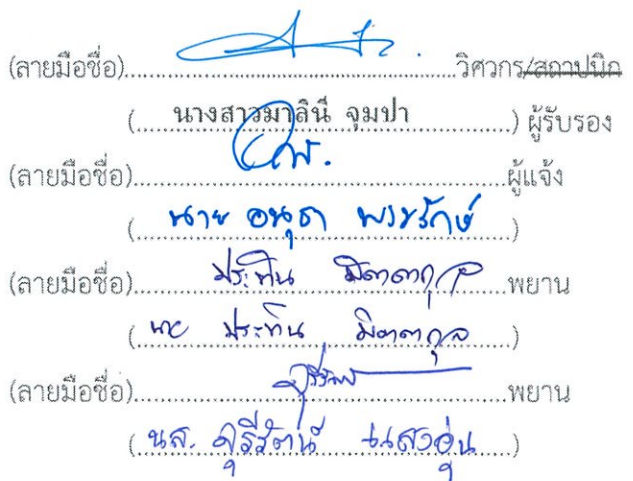 (ลายมือชื่อ)..........วิศวกร/สถาปนิก
(....นางสาวมาลินี จุมปา....) ผู้รับรอง
(ลายมือชื่อ)..........ผู้แจ้ง
(....นาย อนุชา พรหมรักษ์....)
(ลายมือชื่อ)....ประทิน มิตตกุล....พยาน
(....นาย ประทิน มิตตกุล....)
(ลายมือชื่อ)..........พยาน
(....นส. สุรีรัตน์ แสงอุ่น....)